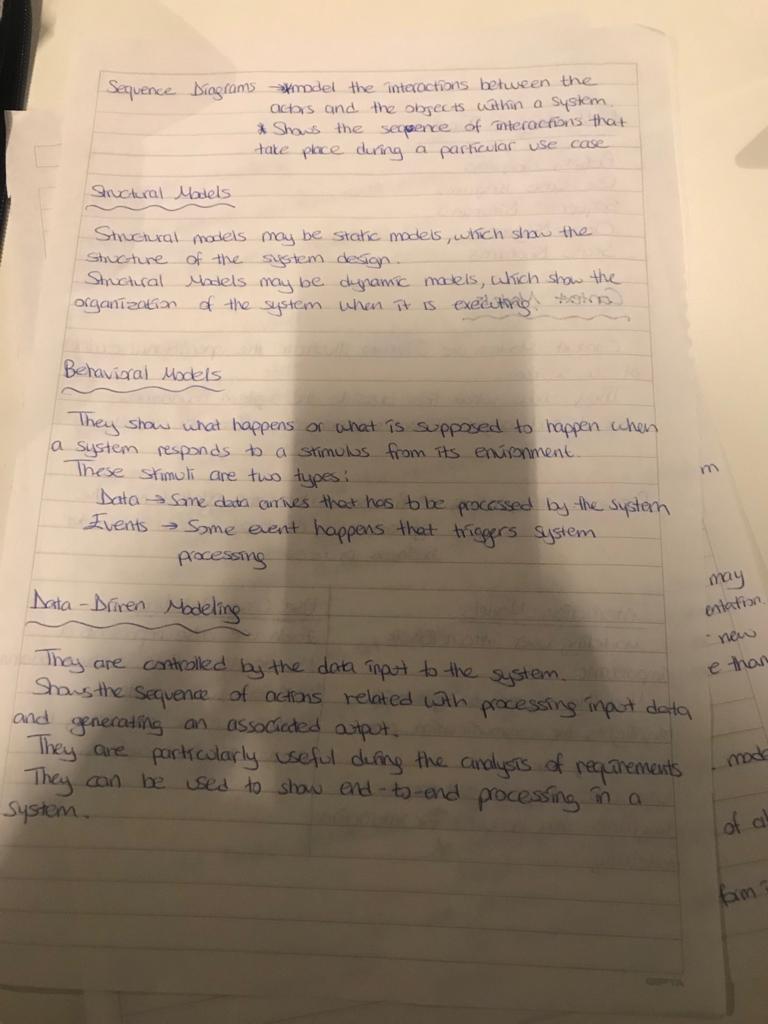 Sequence Diagrams → * model the interactions between the
actors and the objects within a system.
* Shows the sequence of interactions that
take place during a particular use case
Structural Models
Structural models may be static models, which show the
structure of the system design.
Structural Models may be dynamic models, which show the
organization of the system when it is executing.
Behavioral Models
They show what happens or what is supposed to happen when
a system responds to a stimulus from its environment.
These stimuli are two types:
Data → Some data arrives that has to be processed by the system
Events → Some event happens that triggers system
processing
Data-Driven Modeling
They are controlled by the data input to the system.
Shows the sequence of actions related with processing input data
and generating an associated output.
They are particularly useful during the analysis of requirements
They can be used to show end-to-end processing in a
system.
m
may
entation.
new
e than
mode
of al
form
GIPTA